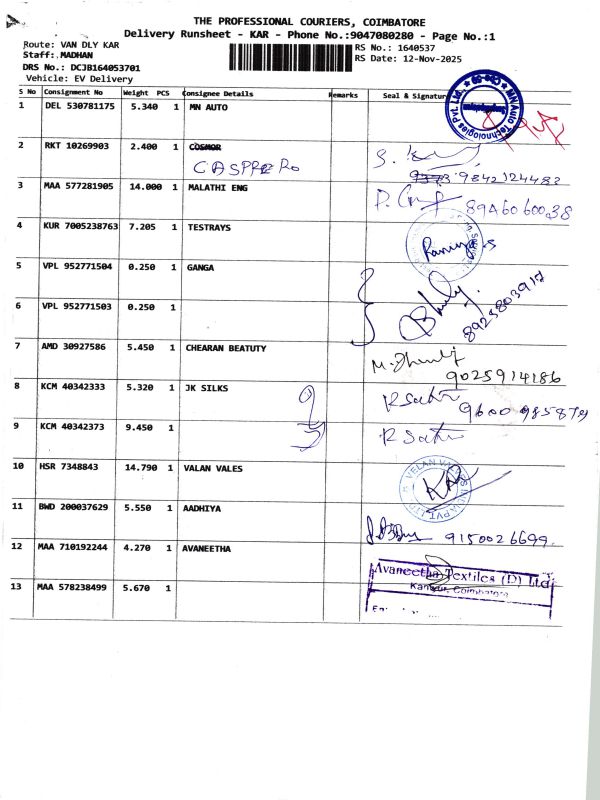 THE PROFESSIONAL COURIERS, COIMBATORE
Delivery Runsheet - KAR - Phone No.:9047080280 - Page No.:1
Route: VAN DLY KAR
RS No.: 1640537
Staff: MADHAN
RS Date: 12-Nov-2025
DRS No.: DCJB164053701
Vehicle: EV Delivery
S No Consignment No Weight PCS Consignee Details Remarks Seal & Signature
1 DEL 530781175 5.340 1 MN AUTO
MN Auto Technologies Pvt. Ltd.
2 RKT 10269903 2.400 1 COSMOR
CASPRERO
9842124482
3 MAA 577281905 14.000 1 MALATHI ENG
4 KUR 7005238763 7.205 1 TESTRAYS
5 VPL 952771504 0.250 1 GANGA
6 VPL 952771503 0.250 1
8925803917
7 AMD 30927586 5.450 1 CHEARAN BEATUTY
9025914186
8 KCM 40342333 5.320 1 JK SILKS
9600 985879
9 KCM 40342373 9.450 1
10 HSR 7348843 14.790 1 VALAN VALES
VELAN VALVES INDIA PVT LTD
11 BWD 200037629 5.550 1 AADHIYA
9150026699
12 MAA 710192244 4.270 1 AVANEETHA
Avaneetha Textiles (P) Ltd
Coimbatore
13 MAA 578238499 5.670 1